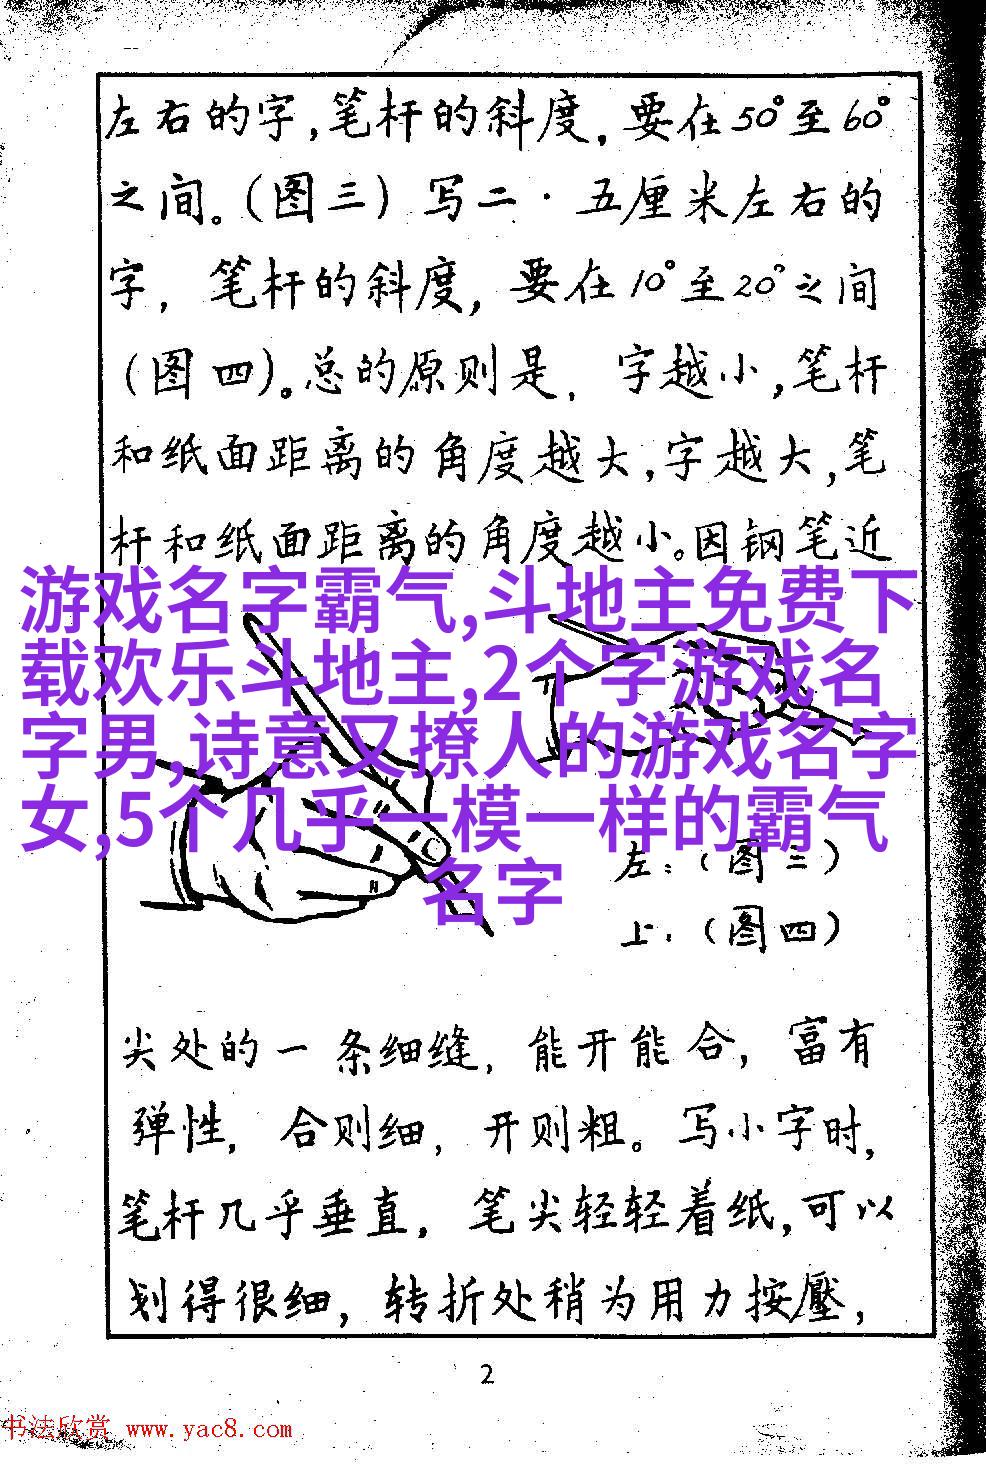 左右的字,笔杆的斜度,要在50°至60°
之间。(图三)写二·五厘米左右的
字,笔杆的斜度,要在10°至20°之间
(图四)。总的原则是,字越小,笔杆
和纸面距离的角度越大,字越大,笔
杆和纸面距离的角度越小。因钢笔近
游戏名字霸气,斗地主免费下
载欢乐斗地主,2个字游戏名
字男,诗意又撩人的游戏名字
女,5个几乎一模一样的霸气
名字
左:(图三)
上:(图四)
尖处的一条细缝,能开能合,富有
弹性,合则细,开则粗。写小字时,
笔杆几乎垂直,笔尖轻轻着纸,可以
划得很细,转折处稍为用力按壓,
2
书法欣赏 www.yac8.com